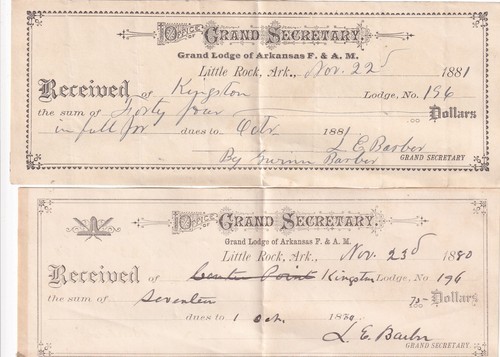 OFFICE GRAND SECRETARY.
Grand Lodge of Arkansas F. & A. M.
Little Rock, Ark., Nov. 22d 1881
Received of Kingston Lodge, No. 196
the sum of Forty four 00 Dollars
in full for dues to Octr 1881
L E Barber
By Gwinn Barber GRAND SECRETARY
OFFICE GRAND SECRETARY.
Grand Lodge of Arkansas F. & A. M.
Little Rock, Ark., Nov. 23d 1880
Received of Center Point Kingston Lodge, No. 196
the sum of Seventeen Dollars
dues to 1 Oct. 1880
L. E. Barber
GRAND SECRETARY.